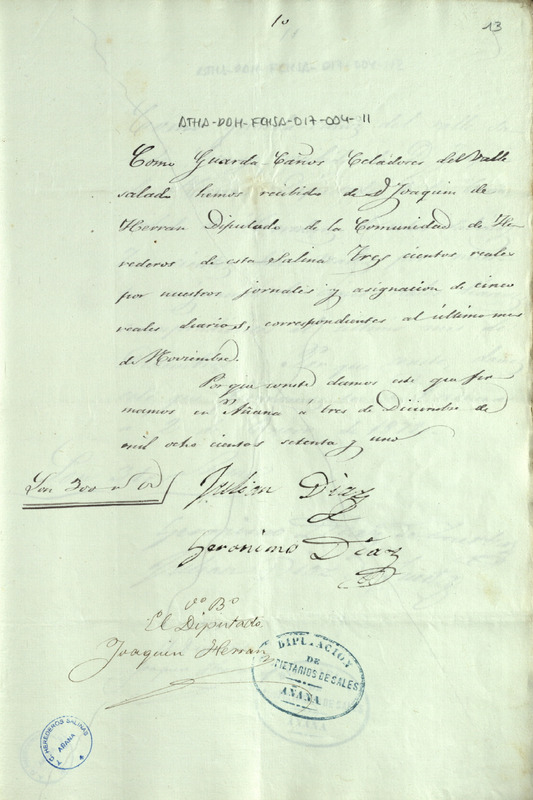 10
13
ATHA-DAH-FCHSA-017-004-11
Como Guarda Caños Celadores del Valle
salado hemos recibido de D. Joaquin de
Herran Diputado de la Comunidad de He-
rederos de esta Salina Tres cientos reales
por nuestros jornales y asignacion de cinco
reales diarios, correspondientes al último mes
de Noviembre.
Por que conste damos este que fir
mamos en Añana a tres de Diciembre de
mil ocho cientos setenta y uno
Son 300 r. v.
Julian Diaz
Geronimo Diaz
Vo Bo
El Diputado
Joaquin Herran
DIPUTACION
DE
PIETARIOS DE SALES
AÑANA
Y C. HEREDEROS SALINAS
AÑANA